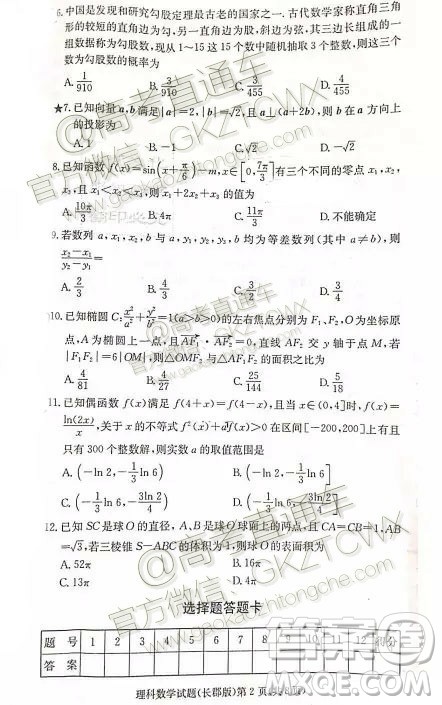 6.中国是发现和研究勾股定理最古老的国家之一.古代数学家称直角三角
形的较短的直角边为勾、另一直角边为股,斜边为弦,其三边长组成的一
组数据称为勾股数,现从1~15这15个数中随机抽取3个整数,则这三个
数为勾股数的概率为
A. 1/910 B. 3/910 C. 3/455 D. 4/455
★7.已知向量a,b满足|a|=2,|b|=√2,且a⊥(a+2b),则b在a方向上
的投影为
A.1 B.-1 C.√2 D.-√2
8.已知函数f(x)=sin(x+π/6)-m,x∈[0,7π/3]有三个不同的零点x₁,x₂,
x₃,且x₁<x₂<x₃,则x₁+2x₂+x₃的值为
A. 10π/3 B.4π C. 11π/3 D.不能确定
9.若数列a,x₁,x₂,b与a,y₁,y₂,y₃,b均为等差数列(其中a≠b),则
(x₂-x₁)/(y₂-y₁)=
A. 2/3 B. 4/3 C. 3/2 D. 3/4
10.已知椭圆C:x²/a²+y²/b²=1(a>b>0)的左右焦点分别为F₁、F₂,O为坐标原
点,A为椭圆上一点,且AF₁·AF₂=0,直线AF₂交y轴于点M,若
|F₁F₂|=6|OM|,则△OMF₂与△AF₁F₂的面积之比为
A. 4/81 B. 4/27 C. 25/144 D. 5/18
11.已知偶函数f(x)满足f(4+x)=f(4-x),且当x∈(0,4]时,f(x)=
ln(2x)/x,关于x的不等式f²(x)+af(x)>0在区间[-200,200]上有且
只有300个整数解,则实数a的取值范围是
A.(-ln 2,-1/3 ln 6) B.(-ln 2,-1/3 ln 6]
C.(-1/3 ln 6,-3ln 2/4) D.(-1/3 ln 6,-3ln 2/4]
12.已知SC是球O的直径,A,B是球O球面上的两点,且CA=CB=1,AB
=√3,若三棱锥S-ABC的体积为1,则球O的表面积为
A.52π B.16π
C.13π D.4π
选择题答题卡
题 号 1 2 3 4 5 6 7 8 9 10 11 12 得分
答 案
理科数学试题(长郡版)第 2 页(共8页)
@高考直通车
官方微信:GKZTCWX
www.gaokaozhitongche.com